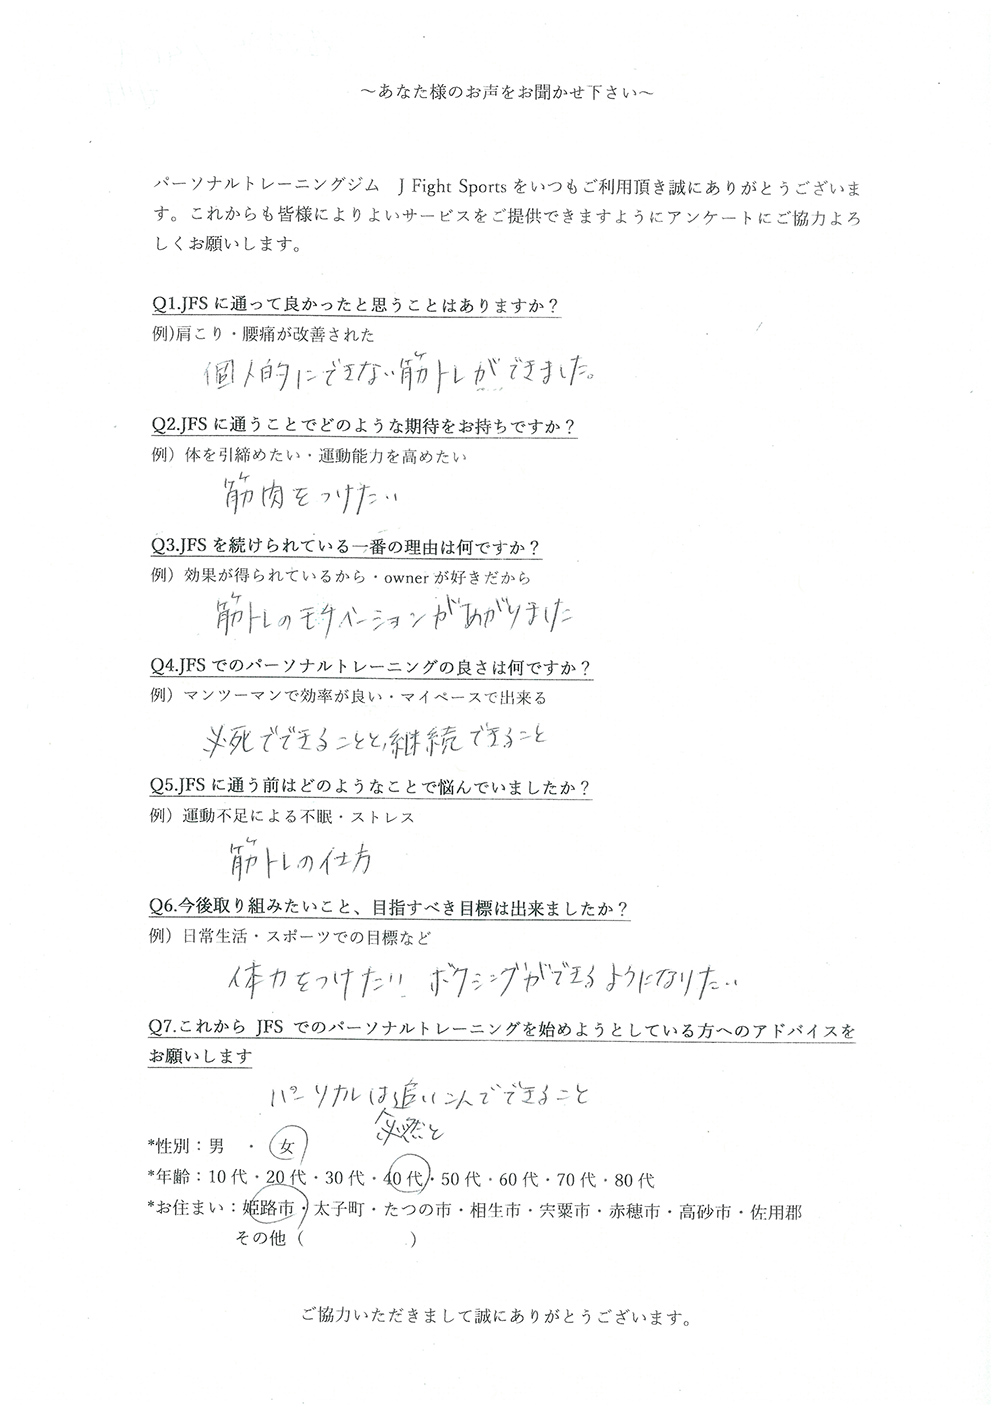 ～あなた様のお声をお聞かせ下さい～
パーソナルトレーニングジム　J Fight Sports をいつもご利用頂き誠にありがとうございま
す。これからも皆様によりよいサービスをご提供できますようにアンケートにご協力よろ
しくお願いします。
Q1.JFS に通って良かったと思うことはありますか？
例)肩こり・腰痛が改善された
個人的にできない筋トレができました。
Q2.JFS に通うことでどのような期待をお持ちですか？
例）体を引締めたい・運動能力を高めたい
筋肉をつけたい
Q3.JFS を続けられている一番の理由は何ですか？
例）効果が得られているから・owner が好きだから
筋トレのモチベーションがあがりました
Q4.JFS でのパーソナルトレーニングの良さは何ですか？
例）マンツーマンで効率が良い・マイペースで出来る
必死でできることと,継続できること
Q5.JFS に通う前はどのようなことで悩んでいましたか？
例）運動不足による不眠・ストレス
筋トレの仕方
Q6.今後取り組みたいこと、目指すべき目標は出来ましたか？
例）日常生活・スポーツでの目標など
体力をつけたい ボクシングができるようになりたい
Q7.これから JFS でのパーソナルトレーニングを始めようとしている方へのアドバイスを
お願いします
パーソナルは追いこんでできること
必然と
*性別：男　・　女
*年齢：10 代・20 代・30 代・40 代・50 代・60 代・70 代・80 代
*お住まい：姫路市・太子町・たつの市・相生市・宍粟市・赤穂市・高砂市・佐用郡
その他（　　　　　　　）
ご協力いただきまして誠にありがとうございます。